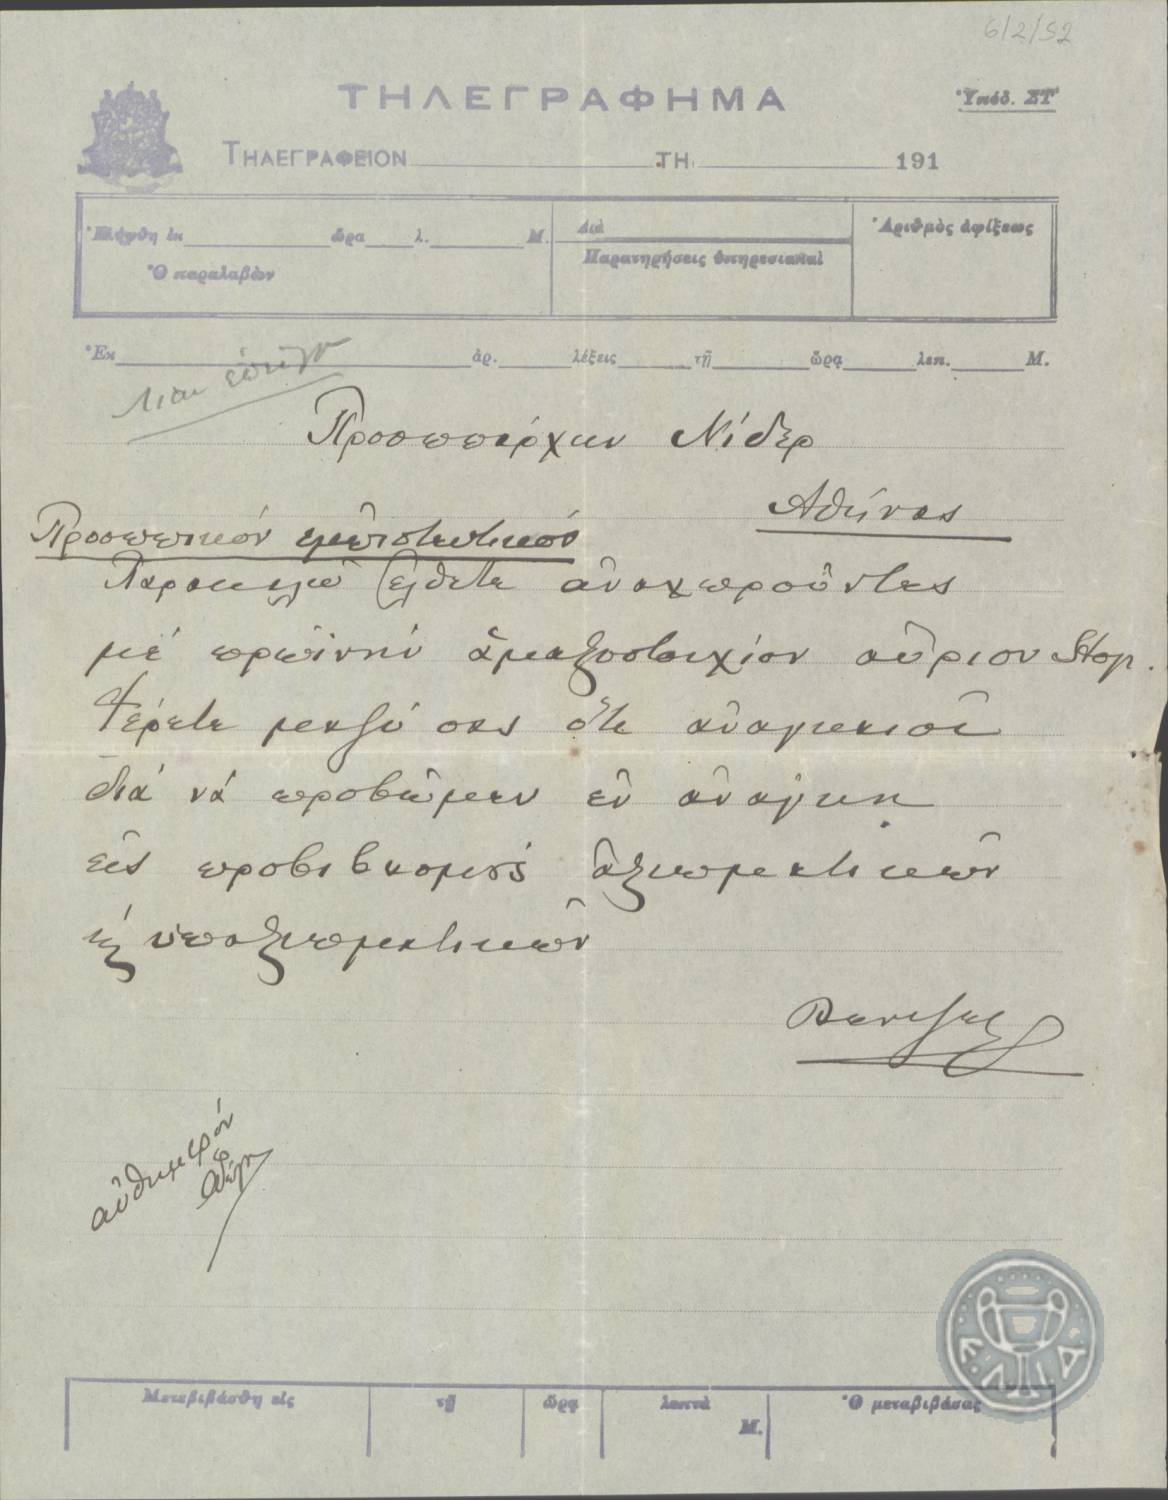 6/2/52
ΤΗΛΕΓΡΑΦΗΜΑ
Ὑπόδ. ΣΤ'
ΤΗΛΕΓΡΑΦΕΙΟΝ ΤΗ 191
Ἐλήφθη ἐκ ὥρα λ. Μ.
Ὁ παραλαβὼν
Διὰ
Παρατηρήσεις ὑπηρεσιακαὶ
Ἀριθμὸς ἀφίξεως
Ἐκ ἀρ. λέξεις τῇ ὥρᾳ λεπ. Μ.
Λίαν ἐπεῖγον
Προσωπάρχην Νίδερ
Ἀθήνας
Προσωπικόν ἐμπιστευτικόν
Παρακαλῶ ἔλθετε ἀναχωροῦντες
μέ πρωϊνήν ἁμαξοστοιχίαν αὔριον Stop.
Φέρετε μαζύ σας ὅτι ἀναγκαιοῖ
διά νά προβῶμεν ἐν ἀνάγκῃ
εἰς προβιβασμούς ἀξιωματικῶν
ἤ ὑπαξιωματικῶν
αὐθημερόν
Μετεβιβάσθη εἰς τῇ ὥρᾳ λεπτὰ Μ. Ὁ μεταβιβάσας
ΕΛΙΑ